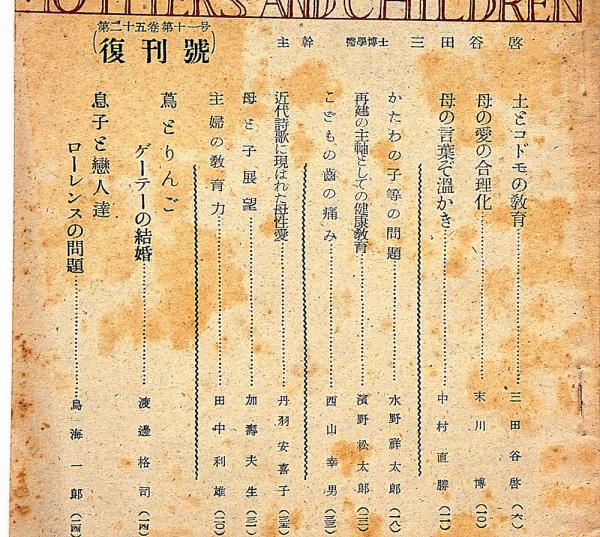 MOTHERS AND CHILDREN
第二十五卷第十一号
(復刊號)
主幹 醫學博士 三田谷 啓
土とコドモの敎育 三田谷 啓 (六)
母の愛の合理化 末川 博 (一〇)
母の言葉ぞ溫かき 中村直勝 (一一)
かたわの子等の問題 水野祥太郎 (一八)
再建の主軸としての健康敎育 濱野松太郎 (二二)
こどもの齒の痛み 西山幸男 (三三)
近代詩歌に現はれた母性愛 丹羽安喜子 (三五)
母と子展望 加壽夫生 (三一)
主婦の敎育力 田中利雄 (二〇)
蔦とりんご
ゲーテーの結婚 渡邊格司 (一四)
息子と戀人達
ローレンスの問題 鳥海一郎 (二四)